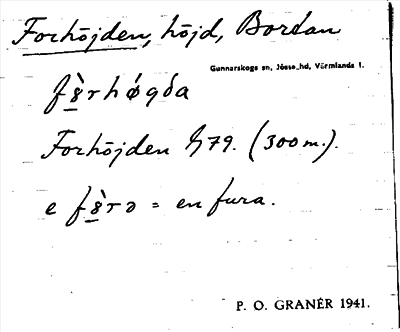 Forhöjden, höjd, Bordan
Gunnarskogs sn, Jösse hd, Värmlands l.
Forhöjden § 79. (300 m.).
= en fura.
P. O. GRANÉR 1941.